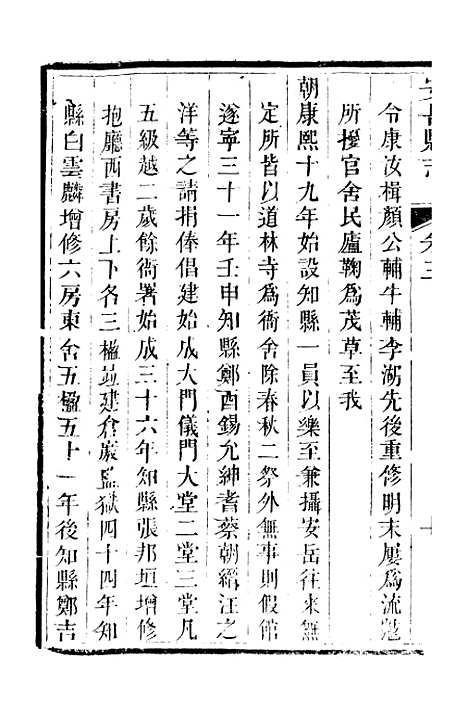 安岳縣志
卷三
令康汝楫顏公輔牛輔李湖先後重修明末屢爲流寇
所擾官舍民廬鞠爲茂草至我
朝康熙十九年始設知縣一員以樂至兼攝安岳往來無
定所皆以道林寺爲衙舍除春秋二祭外無事則假館
遂寧三十一年壬申知縣鄭酉錫允紳耆蔡朝縉汪之
洋等之請捐俸倡建始成大門儀門大堂二堂三堂凡
五級越二歲餘衙署始成三十六年知縣張邦垣增修
抱廳西書房上下各三楹竝建倉廒監獄四十四年知
縣白雲麟增修六房東舍五楹五十一年後知縣鄭吉